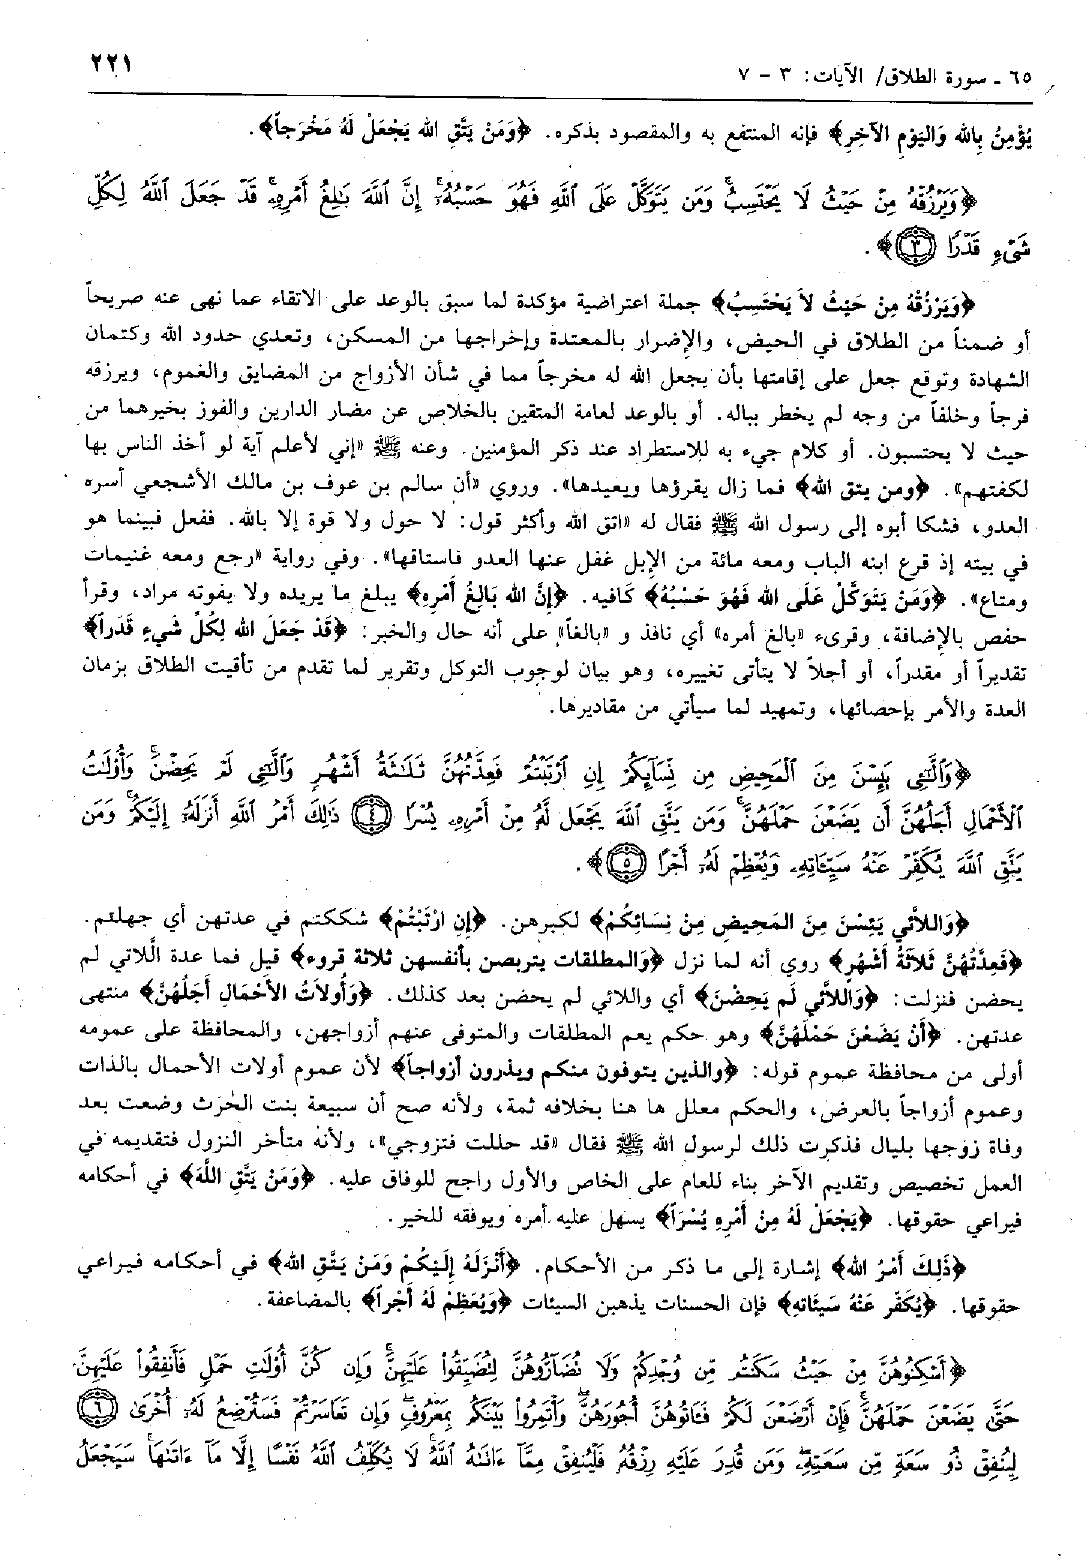 ٦٥ ـ سورة الطلاق/ الآيات: ٣ – ٧
٢٢١
يُؤْمِنُ بِالله وَاليَوْمِ الآخِرِ﴾ فإنه المنتفع به والمقصود بذكره. ﴿وَمَنْ يَتَّقِ الله يَجْعَلْ لَهُ مَخْرَجاً﴾.
﴿وَيَرْزُقْهُ مِنْ حَيْثُ لَا يَحْتَسِبُ ۚ وَمَن يَتَوَكَّلْ عَلَى ٱللَّهِ فَهُوَ حَسْبُهُۥٓ ۚ إِنَّ ٱللَّهَ بَٰلِغُ أَمْرِهِۦ ۚ قَدْ جَعَلَ ٱللَّهُ لِكُلِّ
شَىْءٍ قَدْرًا ٣﴾.
﴿وَيَرْزُقْهُ مِنْ حَيْثُ لاَ يَحْتَسِبُ﴾ جملة اعتراضية مؤكدة لما سبق بالوعد على الاتقاء عما نهى عنه صريحاً
أو ضمناً من الطلاق في الحيض، والإضرار بالمعتدة وإخراجها من المسكن، وتعدي حدود الله وكتمان
الشهادة وتوقع جعل على إقامتها بأن يجعل الله له مخرجاً مما في شأن الأزواج من المضايق والغموم، ويرزقه
فرجاً وخلفاً من وجه لم يخطر بباله. أو بالوعد لعامة المتقين بالخلاص عن مضار الدارين والفوز بخيرهما من
حيث لا يحتسبون. أو كلام جيء به للاستطراد عند ذكر المؤمنين. وعنه ﷺ «إني لأعلم آية لو أخذ الناس بها
لكفتهم». ﴿ومن يتق الله﴾ فما زال يقرؤها ويعيدها». وروي «أن سالم بن عوف بن مالك الأشجعي أسره
العدو، فشكا أبوه إلى رسول الله ﷺ فقال له «اتق الله وأكثر قول: لا حول ولا قوة إلا بالله. ففعل فبينما هو
في بيته إذ قرع ابنه الباب ومعه مائة من الإبل غفل عنها العدو فاستاقها». وفي رواية «رجع ومعه غنيمات
ومتاع». ﴿وَمَنْ يَتَوَكَّلْ عَلَى الله فَهُوَ حَسْبُهُ﴾ كافيه. ﴿إِنَّ الله بَالِغُ أَمْرِهِ﴾ يبلغ ما يريده ولا يفوته مراد، وقرأ
حفص بالإضافة، وقرىء «بالغ أمره» أي نافذ و «بالغاً» على أنه حال والخبر: ﴿قَدْ جَعَلَ الله لِكُلِّ شَيءٍ قَدَراً﴾
تقديراً أو مقدراً، أو أجلاً لا يتأتى تغييره، وهو بيان لوجوب التوكل وتقرير لما تقدم من تأقيت الطلاق بزمان
العدة والأمر بإحصائها، وتمهيد لما سيأتي من مقاديرها.
﴿وَٱلَّٰٓـِٔى يَئِسْنَ مِنَ ٱلْمَحِيضِ مِن نِّسَآئِكُمْ إِنِ ٱرْتَبْتُمْ فَعِدَّتُهُنَّ ثَلَٰثَةُ أَشْهُرٍ وَٱلَّٰٓـِٔى لَمْ يَحِضْنَ ۚ وَأُو۟لَٰتُ
ٱلْأَحْمَالِ أَجَلُهُنَّ أَن يَضَعْنَ حَمْلَهُنَّ ۚ وَمَن يَتَّقِ ٱللَّهَ يَجْعَل لَّهُۥ مِنْ أَمْرِهِۦ يُسْرًا ٤ ذَٰلِكَ أَمْرُ ٱللَّهِ أَنزَلَهُۥٓ إِلَيْكُمْ ۚ وَمَن
يَتَّقِ ٱللَّهَ يُكَفِّرْ عَنْهُ سَيِّـَٔاتِهِۦ وَيُعْظِمْ لَهُۥٓ أَجْرًا ٥﴾.
﴿وَاللاَّئي يَئِسْنَ مِنَ المَحيضِ مِنْ نِسَائِكُمْ﴾ لكبرهن. ﴿إِنِ ارْتَبْتُمْ﴾ شككتم في عدتهن أي جهلتم.
﴿فَعِدَّتُهُنَّ ثَلاَثَةُ أَشْهُرٍ﴾ روي أنه لما نزل ﴿وَالمطلقات يتربصن بأنفسهن ثلاثة قروء﴾ قيل فما عدة الَّلاتي لم
يحضن فنزلت: ﴿وَاللائِي لَم يَحِضْنَ﴾ أي واللائي لم يحضن بعد كذلك. ﴿وَأُولاَتُ الأَحْمَالِ أَجَلُهُنَّ﴾ منتهى
عدتهن. ﴿أَنْ يَضَعْنَ حَمْلَهُنَّ﴾ وهو حكم يعم المطلقات والمتوفى عنهم أزواجهن، والمحافظة على عمومه
أولى من محافظة عموم قوله: ﴿والذين يتوفون منكم ويذرون أزواجاً﴾ لأن عموم أولات الأحمال بالذات
وعموم أزواجاً بالعرض، والحكم معلل ها هنا بخلافه ثمة، ولأنه صح أن سبيعة بنت الحرث وضعت بعد
وفاة زوجها بليال فذكرت ذلك لرسول الله ﷺ فقال «قد حللت فتزوجي»، ولأنه متأخر النزول فتقديمه في
العمل تخصيص وتقديم الآخر بناء للعام على الخاص والأول راجح للوفاق عليه. ﴿وَمَنْ يَتَّقِ اللَّهَ﴾ في أحكامه
فيراعي حقوقها. ﴿يَجْعَلْ لَهُ مِنْ أَمْرِهِ يُسْرَاً﴾ يسهل عليه أمره ويوفقه للخير.
﴿ذَلِكَ أَمْرُ الله﴾ إشارة إلى ما ذكر من الأحكام. ﴿أَنْزَلَهُ إِلَيْكُمْ وَمَنْ يَتَّقِ الله﴾ في أحكامه فيراعي
حقوقها. ﴿يُكَفِّر عَنْهُ سَيئَاتِهِ﴾ فإن الحسنات يذهبن السيئات ﴿وَيُعْظِمْ لَهُ أَجْراً﴾ بالمضاعفة.
﴿أَسْكِنُوهُنَّ مِنْ حَيْثُ سَكَنتُم مِّن وُجْدِكُمْ وَلَا تُضَآرُّوهُنَّ لِتُضَيِّقُوا۟ عَلَيْهِنَّ ۚ وَإِن كُنَّ أُو۟لَٰتِ حَمْلٍ فَأَنفِقُوا۟ عَلَيْهِنَّ
حَتَّىٰ يَضَعْنَ حَمْلَهُنَّ ۚ فَإِنْ أَرْضَعْنَ لَكُمْ فَـَٔاتُوهُنَّ أُجُورَهُنَّ ۖ وَأْتَمِرُوا۟ بَيْنَكُم بِمَعْرُوفٍ ۖ وَإِن تَعَاسَرْتُمْ فَسَتُرْضِعُ لَهُۥٓ أُخْرَىٰ ٦
لِيُنفِقْ ذُو سَعَةٍ مِّن سَعَتِهِۦ ۖ وَمَن قُدِرَ عَلَيْهِ رِزْقُهُۥ فَلْيُنفِقْ مِمَّآ ءَاتَىٰهُ ٱللَّهُ ۚ لَا يُكَلِّفُ ٱللَّهُ نَفْسًا إِلَّا مَآ ءَاتَىٰهَا ۚ سَيَجْعَلُ